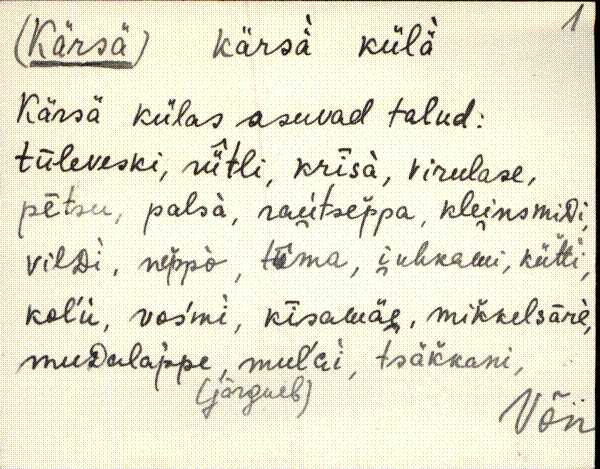 1
(Kärsä) kärsà külà
Kärsä külas asuvad talud:
tūleveski, rǖtli, krīsà, virulase,
pētsu, palsà, raùtseppa, kleinsmiDi,
vilDì, neppò, tūma, juhkami, kütti,
kolìi, vos'mì, kīsamäe, mikkelsārè,
muDalàppe, mul'ci, tsäkkani,
(järgneb)
Võn